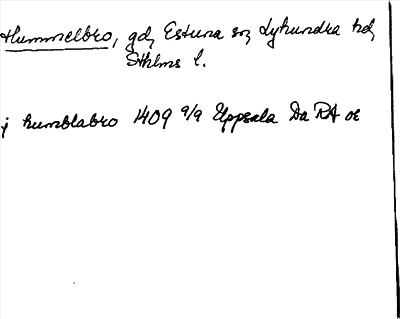 Hummelbro, gd, Estuna sn, Lyhundra hd,
Sthlms l.
j humblabro 1409 9/9 Uppsala Da RA or